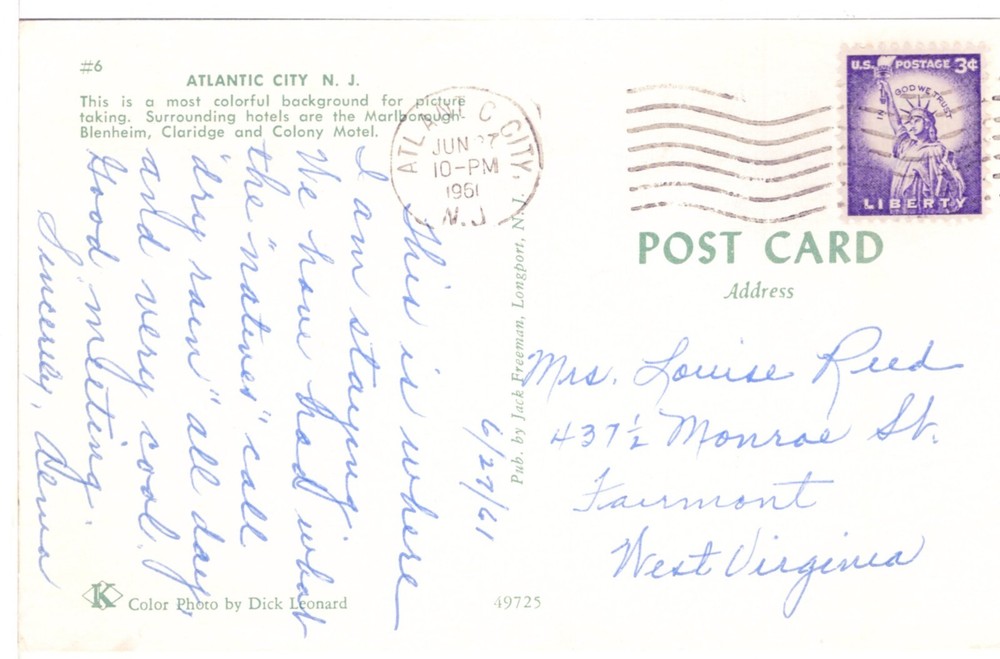 #6
ATLANTIC CITY N. J.
This is a most colorful background for picture
taking. Surrounding hotels are the Marlborough-
Blenheim, Claridge and Colony Motel.
ATLANTIC CITY,
JUN 27
10-PM
1961
N.J
U.S. POSTAGE 3¢
IN GOD WE TRUST
LIBERTY
POST CARD
Address
6/27/61
This is where
I am staying.
We have had what
the "natives" call
"dry rain" all day
and very cool.
Good meeting.
Sincerely,
Mrs. Louise Reed
437½ Monroe St.
Fairmont
West Virginia
Pub. by Jack Freeman, Longport, N.J.
K
Color Photo by Dick Leonard
49725